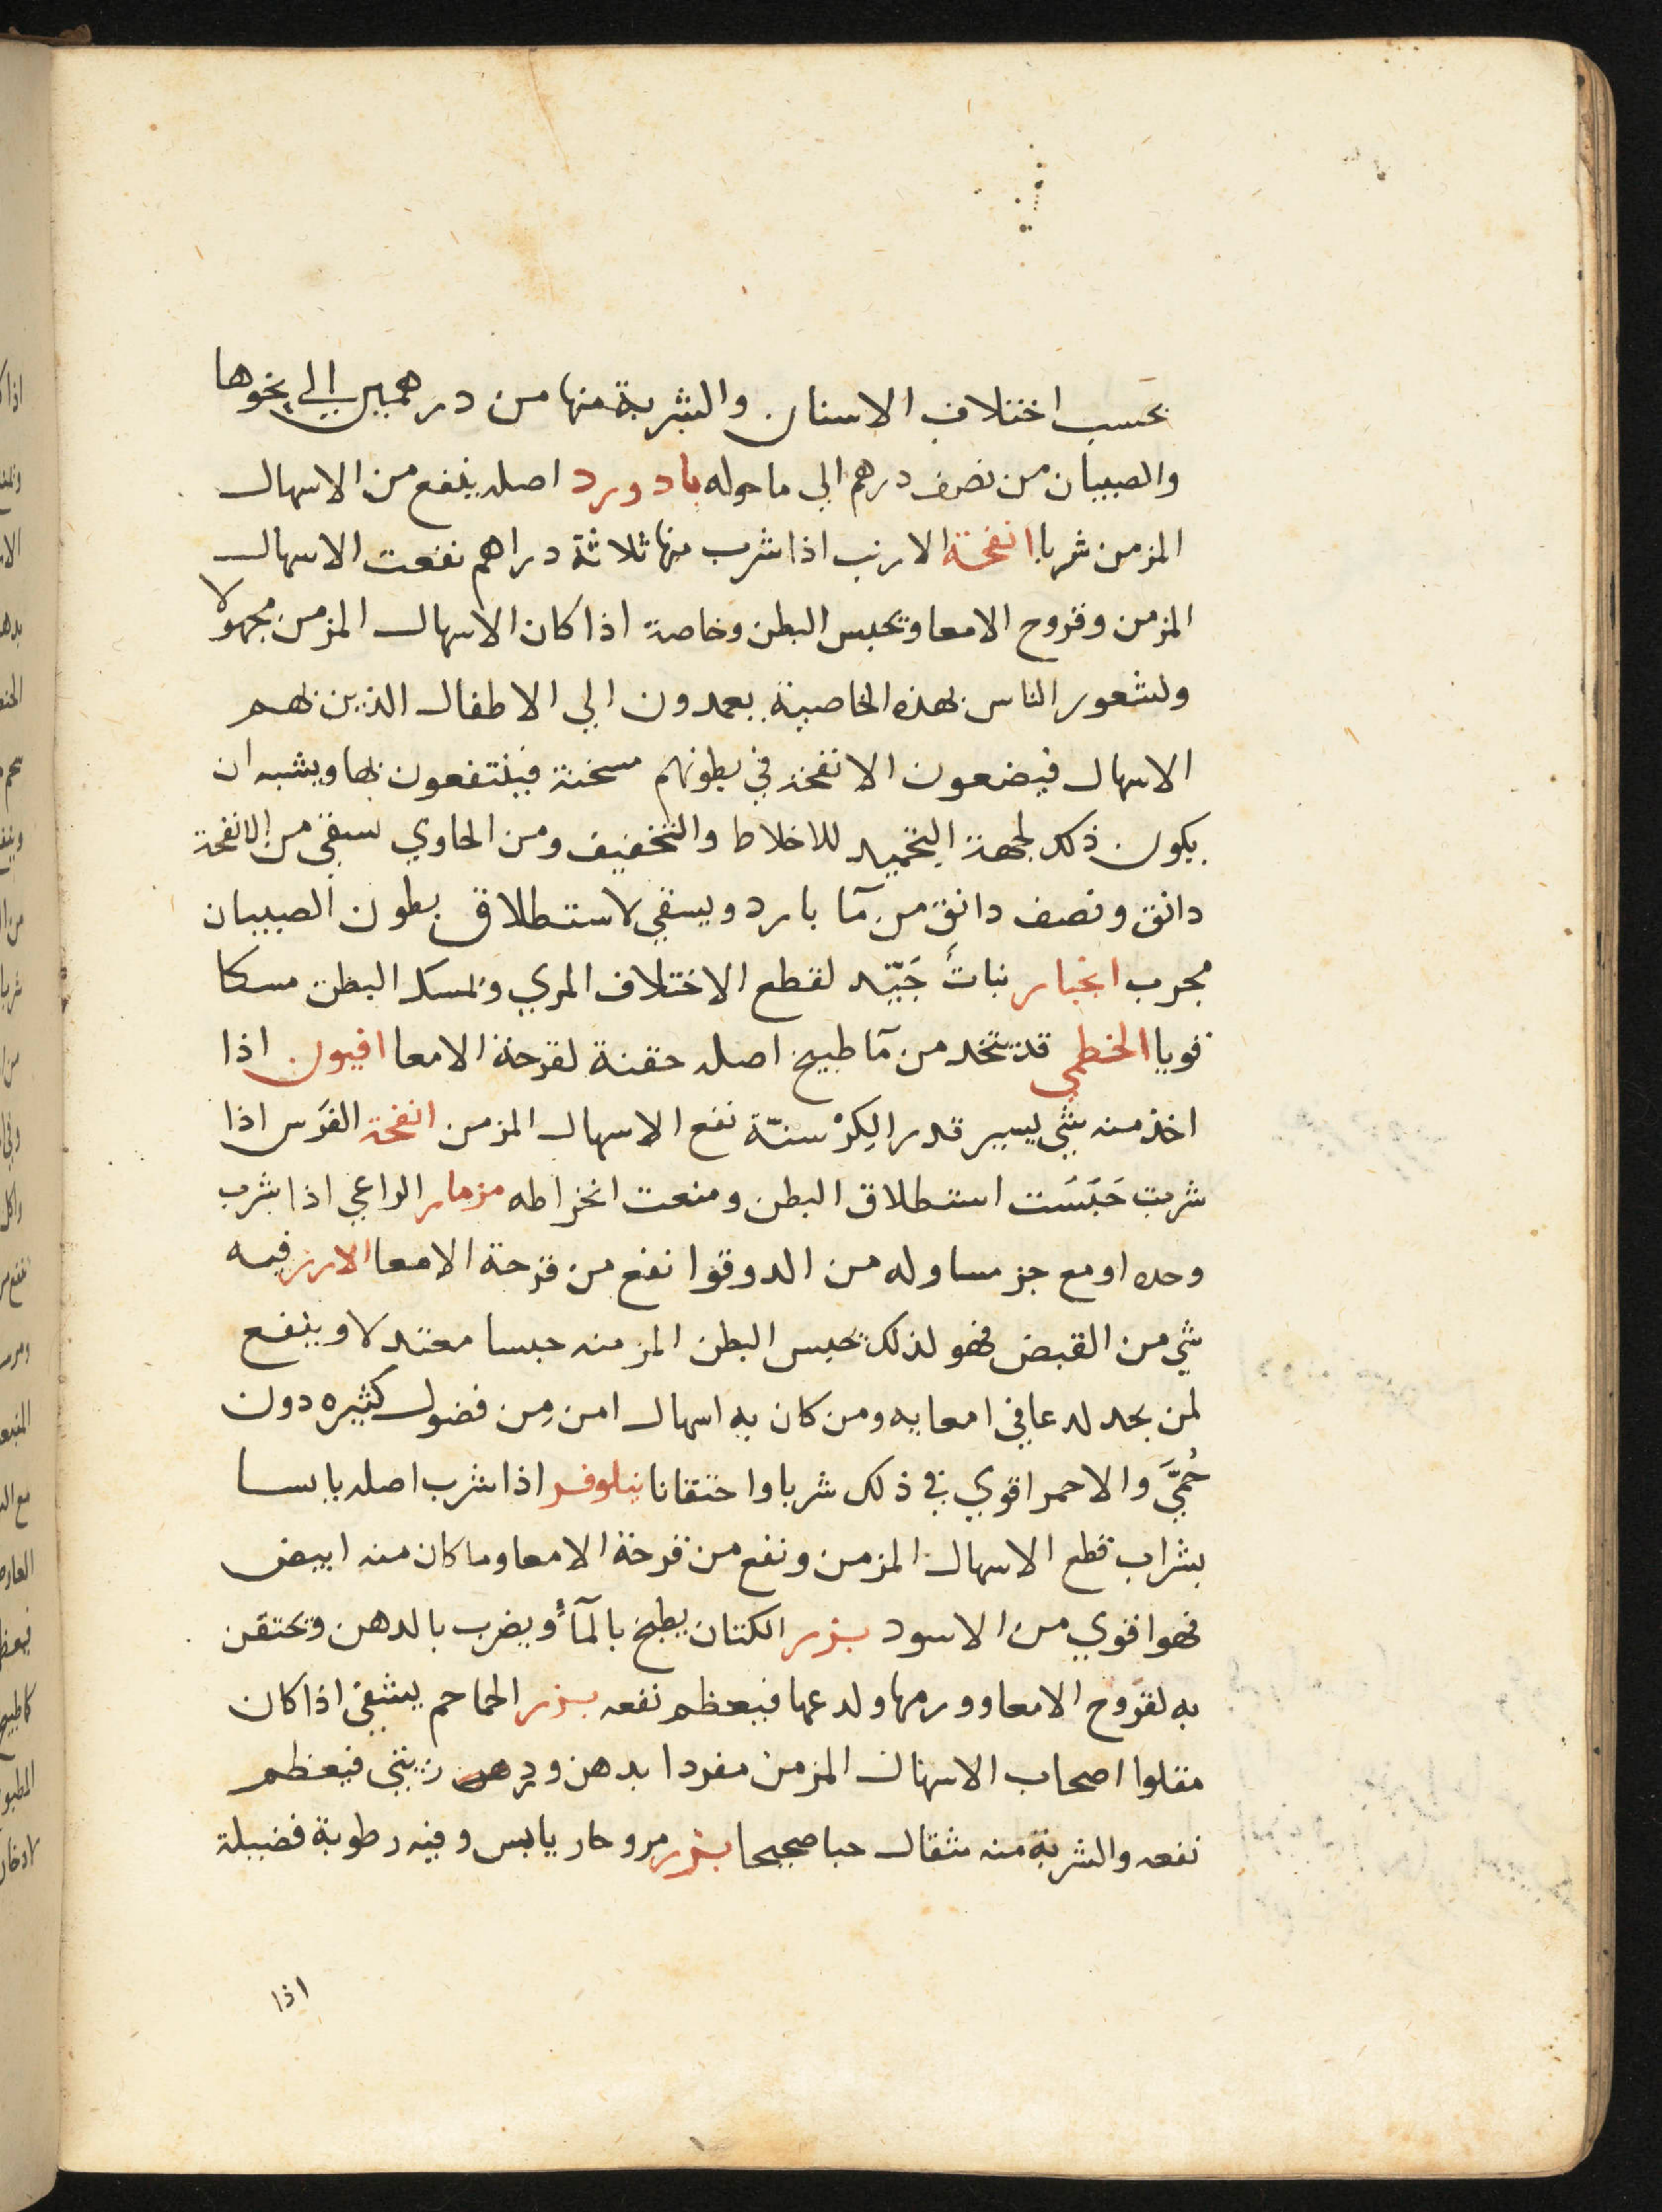 بحسب اختلاف الاسنان والشربة منها من درهمين الي نحوها
والصبيان من نصف درهم الي ما حوله بادورد اصله ينفع من الاسهال
المزمن شربا انفحة الارنب اذا شرب منها ثلاثة دراهم نفعت الاسهال
المزمن وقروح الامعا وتحبس البطن وخاصة اذا كان الاسهال المزمن مجهولا
ولشعور الناس بهذه الخاصية يعمدون الي الاطفال الذين بهم
الاسهال فيضعون الانفحة في بطونهم مسخنة فينتفعون بها ويشبه ان
يكون ذلك لجهة التجميد للاخلاط والتخفيف ومن الحاوي يسقي من الانفحة
دانق ونصف دانق من مآ بارد ويسقي لاستطلاق بطون الصبيان
مجرب انجبار نبات لقطع الاختلاف المري وتمسك البطن مسكا
قويا الخطمي قد يتخد من مآ طبيخ اصله حقنة لقرحة الامعا افيون اذا
اخذ منه شي يسير قدر الكِرْسنّة نفع الاسهال المزمن انفحة الفرس اذا
شربت حَبَسَت استطلاق البطن ومنعت انخراطه مزمار الراعي اذا شرب
وحده او مع جز مساو له من الدوقوا نفع من قرحة الامعا الارز فيه
شي من القبض فهو لذلك يحبس البطن المزمنه حبسا معتدلا وينفع
لمن يجد لدعا في امعايه ومن كان به اسهال امن مِن فضول كثيره دون
حُمَّيَ والاحمر اقوي في ذلك شربا واحتقانا نيلوفر اذا شرب اصله يابسا
بشراب قطع الاسهال المزمن ونفع من قرحة الامعا وما كان منه ابيض
فهو اقوي من الاسود بزر الكتان يطبخ بالمآء ويضرب بالدهن وتحتقن
به لقروح الامعا وورمها ولدعها فيعظم نفعه بزر الحماحم يشفي اذا كان
مقلوا اصحاب الاسهال المزمن مفردا بدهن ورد فيعظم
نفعه والشربة منه مثقال حبا صحيحا بزر مرو حار يابس وفيه رطوبة فضيلة
اذا